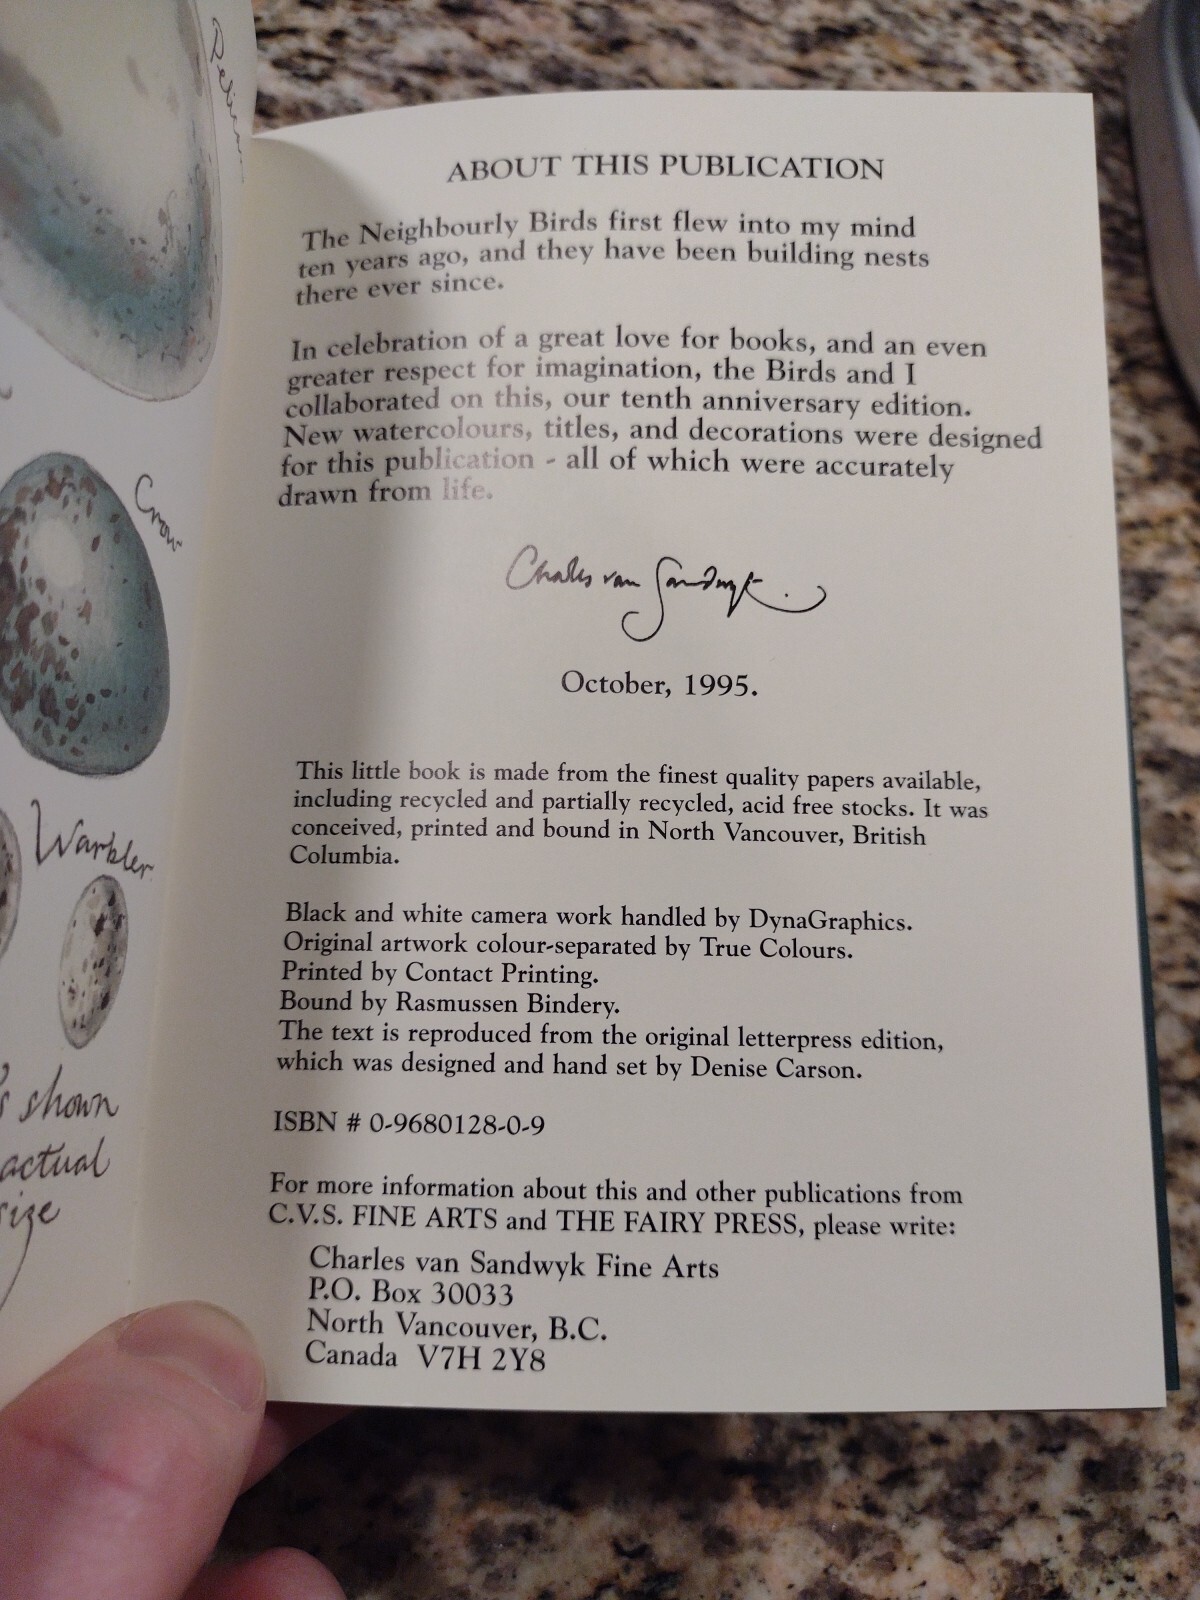 Crow
Warbler
shown
actual
size
ABOUT THIS PUBLICATION
The Neighbourly Birds first flew into my mind
ten years ago, and they have been building nests
there ever since.
In celebration of a great love for books, and an even
greater respect for imagination, the Birds and I
collaborated on this, our tenth anniversary edition.
New watercolours, titles, and decorations were designed
for this publication - all of which were accurately
drawn from life.
Charles van Sandwyk.
October, 1995.
This little book is made from the finest quality papers available,
including recycled and partially recycled, acid free stocks. It was
conceived, printed and bound in North Vancouver, British
Columbia.
Black and white camera work handled by DynaGraphics.
Original artwork colour-separated by True Colours.
Printed by Contact Printing.
Bound by Rasmussen Bindery.
The text is reproduced from the original letterpress edition,
which was designed and hand set by Denise Carson.
ISBN # 0-9680128-0-9
For more information about this and other publications from
C.V.S. FINE ARTS and THE FAIRY PRESS, please write:
Charles van Sandwyk Fine Arts
P.O. Box 30033
North Vancouver, B.C.
Canada V7H 2Y8